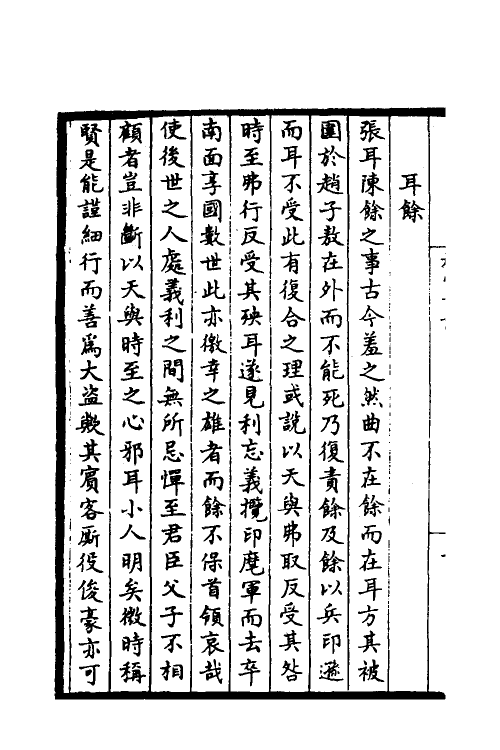 耳餘
張耳陳餘之事古今羞之然曲不在餘而在耳方其被
圍於趙子敖在外而不能死乃復責餘及餘以兵印遜
而耳不受此有復合之理或說以天與弗取反受其咎
時至弗行反受其殃耳遂見利忘義攬印麾軍而去卒
南面享國數世此亦徼幸之雄者而餘不保首領哀哉
使後世之人處義利之間無所忌憚至君臣父子不相
顧者豈非斷以天與時至之心邪耳小人明矣微時稱
賢是能謹細行而善爲大盗歟其賓客厮役俊豪亦可